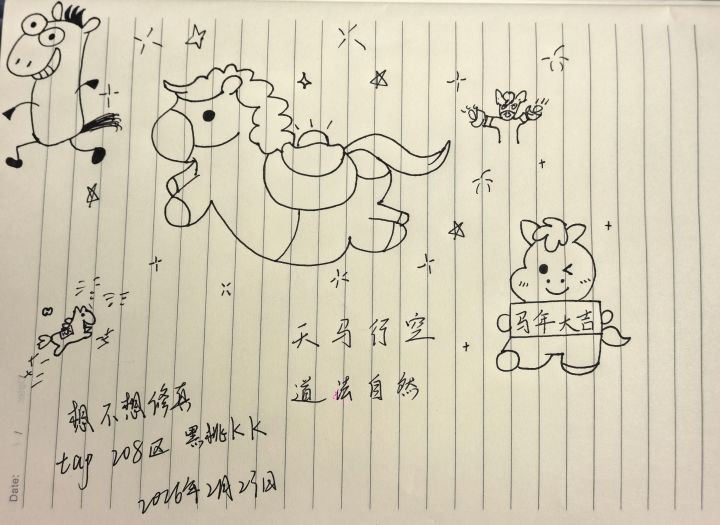 马年大吉
天马行空
道法自然
想不想修真
tap 208区 黑桃KK
2026年2月23日
Date: